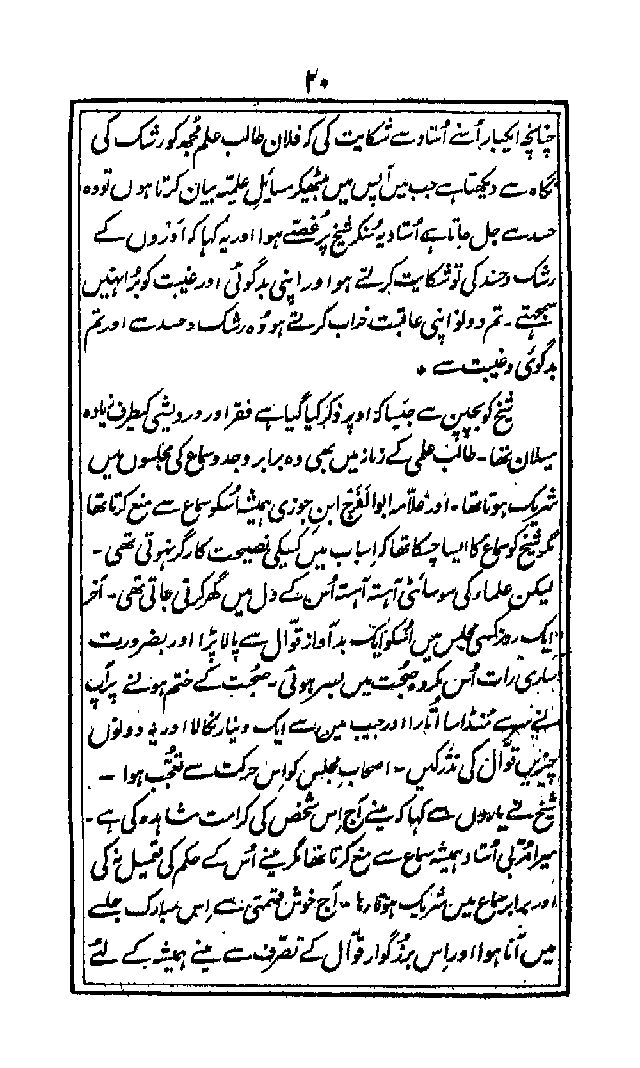 ۲۰
چنانچہ ایکبار اُسنے اُستاد سے شکایت کی کہ فلان طالب علم مُجھ کو رشک کی
نگاہ سے دیکھتا ہے جب میں آپس میں بیٹھکر مسایلِ علمیّہ بیان کرتا ہوں تو وہ
حسد سے جل جاتا ہے اُستاد یہ سُنکر شیخ پر غصّے ہوا اور یہ کہا کہ اَوروں کے
رشک و حسد کی تو شکایت کرتے ہو اور اپنی بدگوئی اور غیبت کو بُرا نہیں
سمجھتے ۔ تم دونو اپنی عاقبت خراب کرتے ہو وُہ رشک و حسد سے اور تم
بدگوئی و غیبت سے *
شیخ کو بچپن سے جیسا کہ اوپر ذکر کیا گیا ہے فقر اور درویشی کیطرف زیادہ
میلان تھا ۔ طالب علمی کے زمانہ میں بھی وہ برابر وجد و سماع کی مجلسوں میں
شریک ہوتا تھا ۔ اور علّامہ ابوالفرج ابنِ جوزی ہمیشہ اُسکو سماع سے منع کرتا تھا
مگر شیخ کو سماع کا ایسا چسکا تھا کہ اِس باب میں کسیکی نصیحت کارگر نہوتی تھی ۔
لیکن علماء کی سوسائٹی آہستہ آہستہ اُس کے دل میں گھر کرتی جاتی تھی ۔ آخر
ایک روز کسی مجلس میں اُسکو ایک بد آواز قوّال سے پالا پڑا اور بضرورت
ساری رات اُس مکروہ صحبت میں بسر ہوئی ۔ صحبت کے ختم ہونے پر آپ
نے سر سے مُنڈاسا اُتارا اور جیب میں سے ایک دینار نکالا اور یہ دونوں
چیزیں قوّال کی نذر کیں ۔ اصحابِ مجلس کو اِس حرکت سے تعجّب ہوا ۔
شیخ نے یاروں سے کہا کہ مینے آج اِس شخص کی کرامت مشاہدہ کی ہے ۔
میرا مُربّی اُستاد ہمیشہ سماع سے منع کرتا تھا مگر مینے اُس کے حکم کی تعمیل نہ کی
اور برابر سماع میں شریک ہوتا رہا ۔ آج خوش قسمتی سے اِس مبارک جلسے
میں آنا ہوا اور اِس بزرگوار قوّال کے تصرّف سے مینے ہمیشہ کے لئے